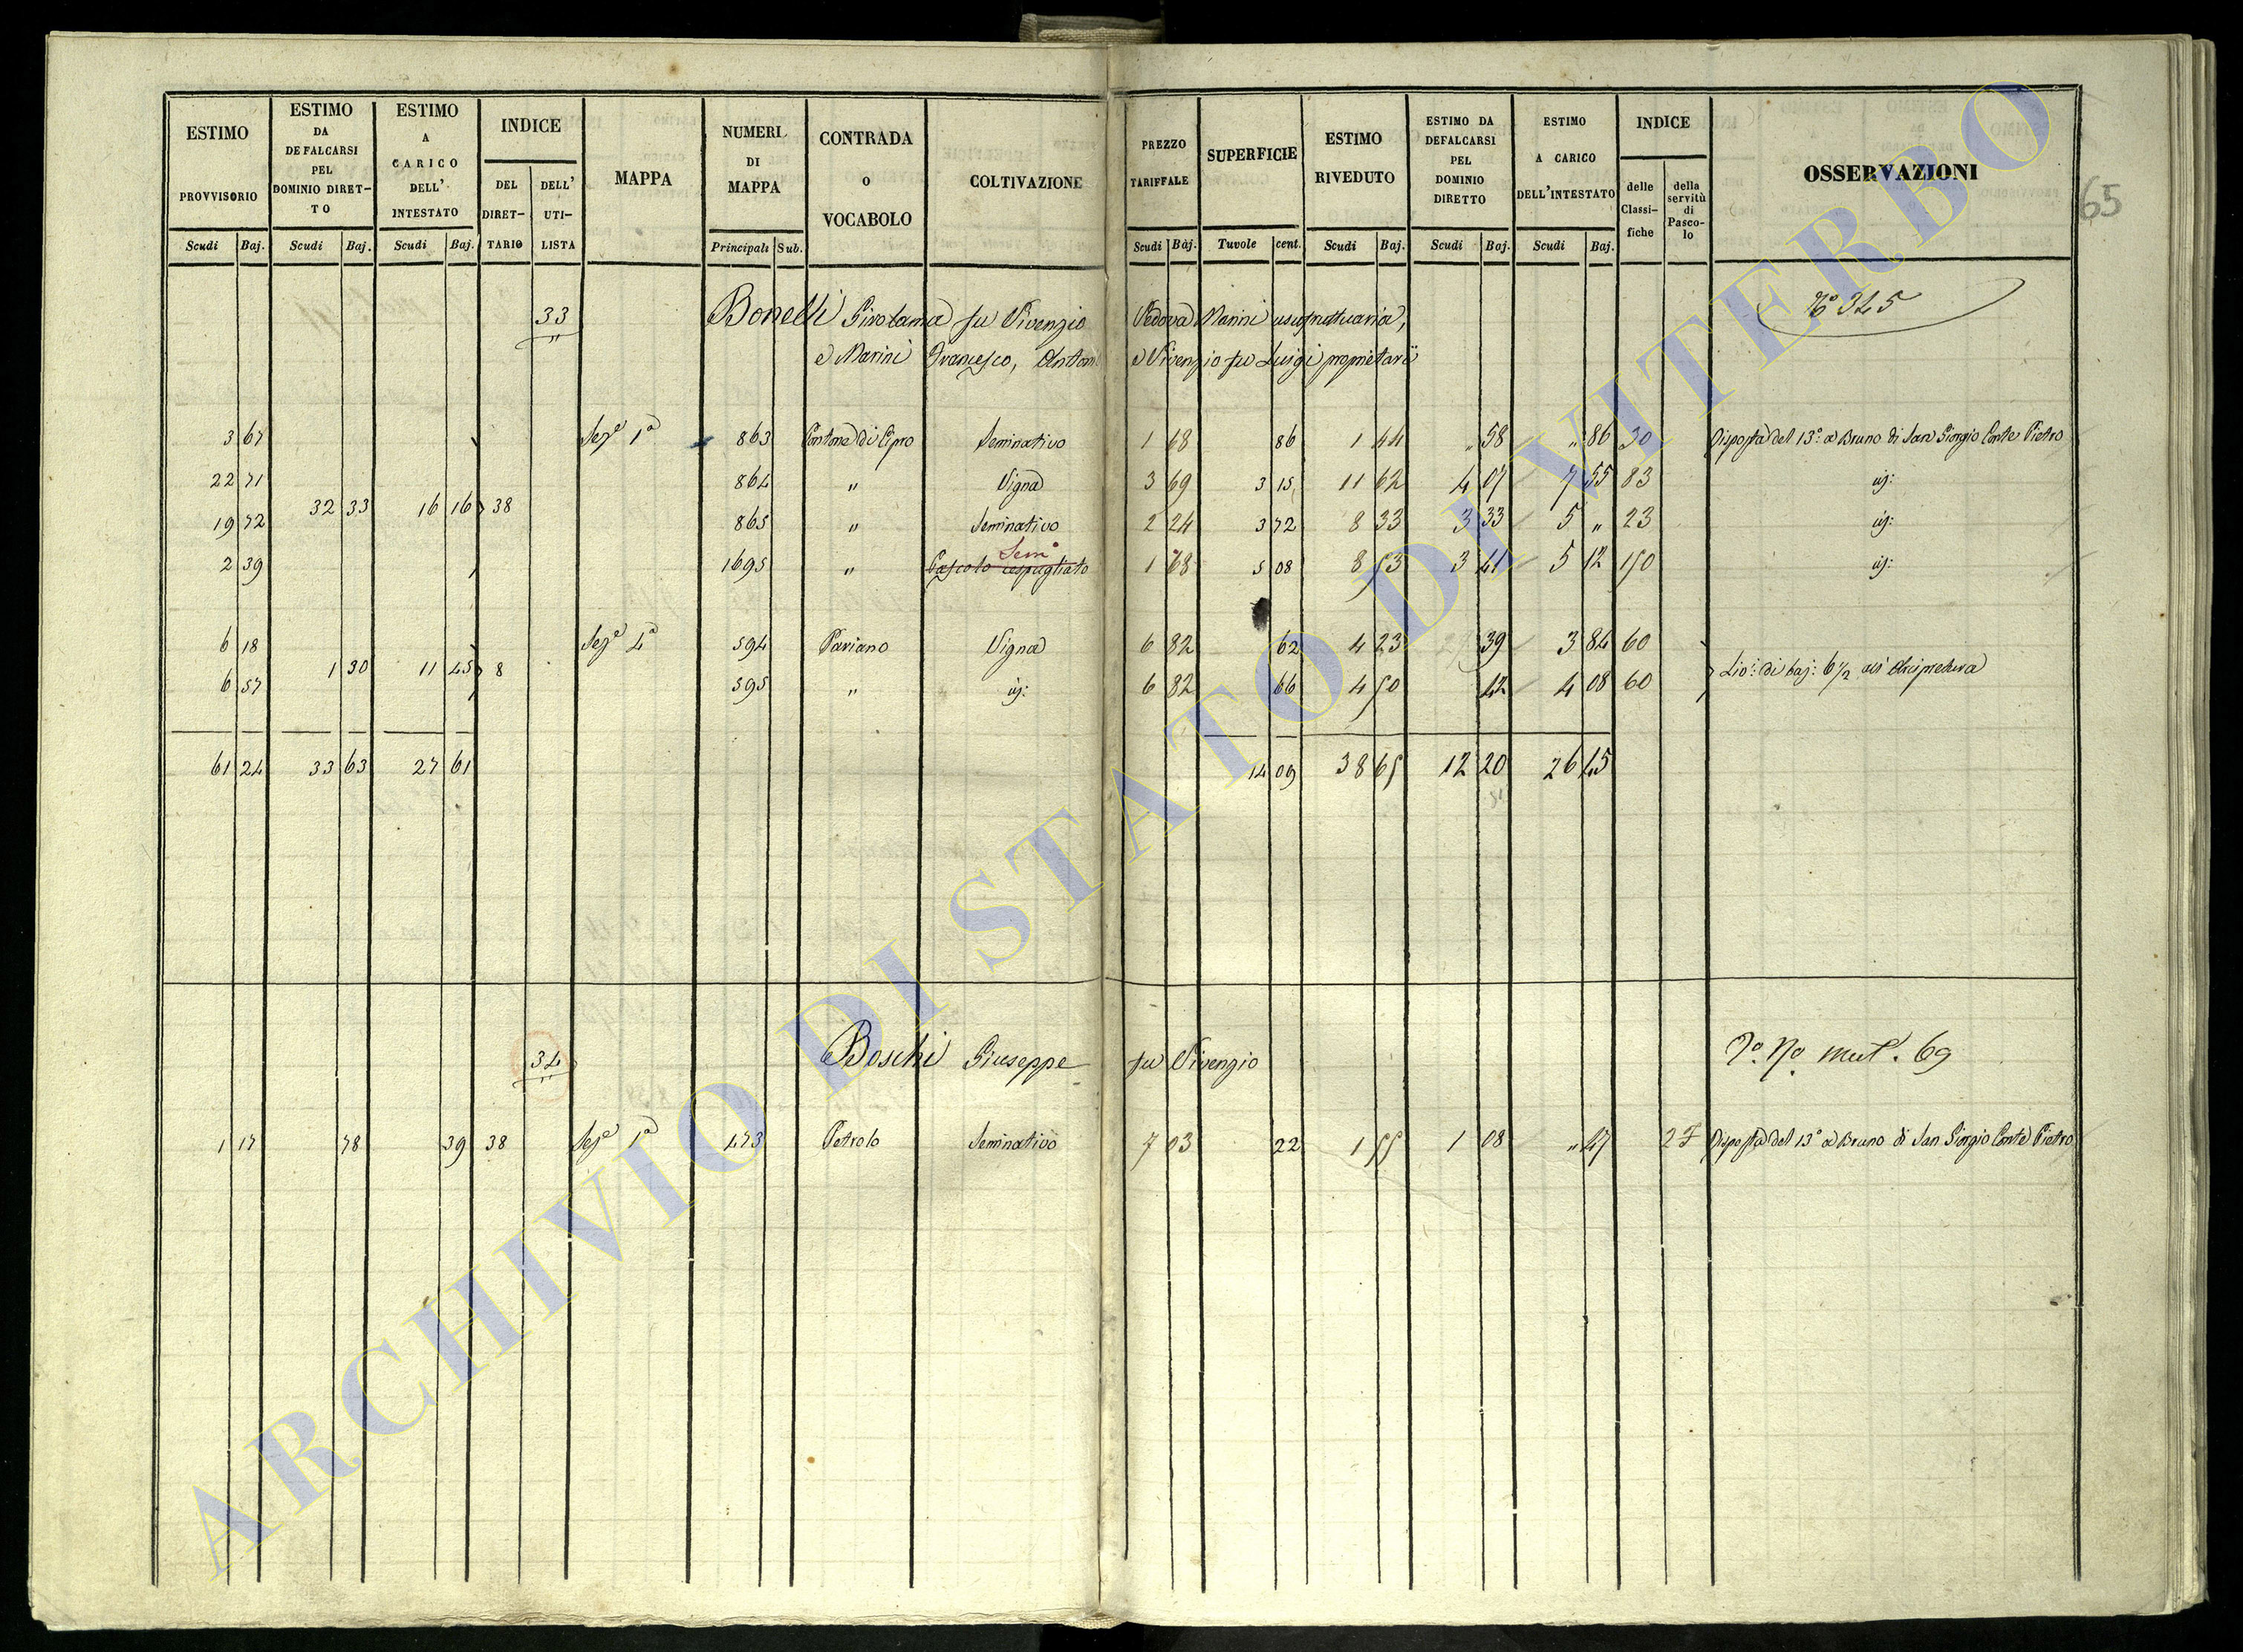 ESTIMO PROVVISORIO Scudi Baj.
ESTIMO DA DEFALCARSI PEL DOMINIO DIRET-TO Scudi Baj.
ESTIMO A CARICO DELL' INTESTATO Scudi Baj.
INDICE DEL DIRET-TARIO DELL' UTI-LISTA
MAPPA
NUMERI DI MAPPA Principali Sub.
CONTRADA O VOCABOLO
COLTIVAZIONE
PREZZO TARIFFALE Scudi Baj.
SUPERFICIE Tavole cent.
ESTIMO RIVEDUTO Scudi Baj.
ESTIMO DA DEFALCARSI PEL DOMINIO DIRETTO Scudi Baj.
ESTIMO A CARICO DELL'INTESTATO Scudi Baj.
INDICE delle Classi-fiche della servitù di Pasco-lo
OSSERVAZIONI
65
33 Bonelli Girolama fu Vivenzio Vedova Marini usufruttuaria, N° 345
e Marini Francesco, Antonio e Vivenzio fu Luigi proprietarii
3 67 Sez.e 1a 863 Seminativo 1 68 86 1 44 " 58 " 86 30 Disposta del 13° a Bruno di San Giorgio Conte Pietro
22 71 864 " Vigna 3 69 3 15 11 62 4 07 7 55 83 id:
32 33 16 16 38
19 72 865 " Seminativo 2 24 3 72 8 33 3 33 5 " 23 id:
Sem°
2 39 1695 " Pascolo cespugliato 1 68 5 08 8 53 3 41 5 12 150 id:
6 18 Sez.e 4a 594 Pariano Vigna 6 82 62 4 23 39 3 84 60
1 30 11 45 8 Liv: di baj: 6 1/2 all' Arcipretura
6 57 595 " id: 6 82 66 4 50 42 4 08 60
61 24 33 63 27 61 14 09 38 65 12 20 26 45
34 Boschi Giuseppe fu Vivenzio mut. 69
1 17 78 39 38 Sez.e 1a 473 Petrolo Seminativo 7 03 22 1 55 1 08 " 47 Disposta del 13° a Bruno di San Giorgio Conte Pietro
ARCHIVIO DI STATO DI VITERBO